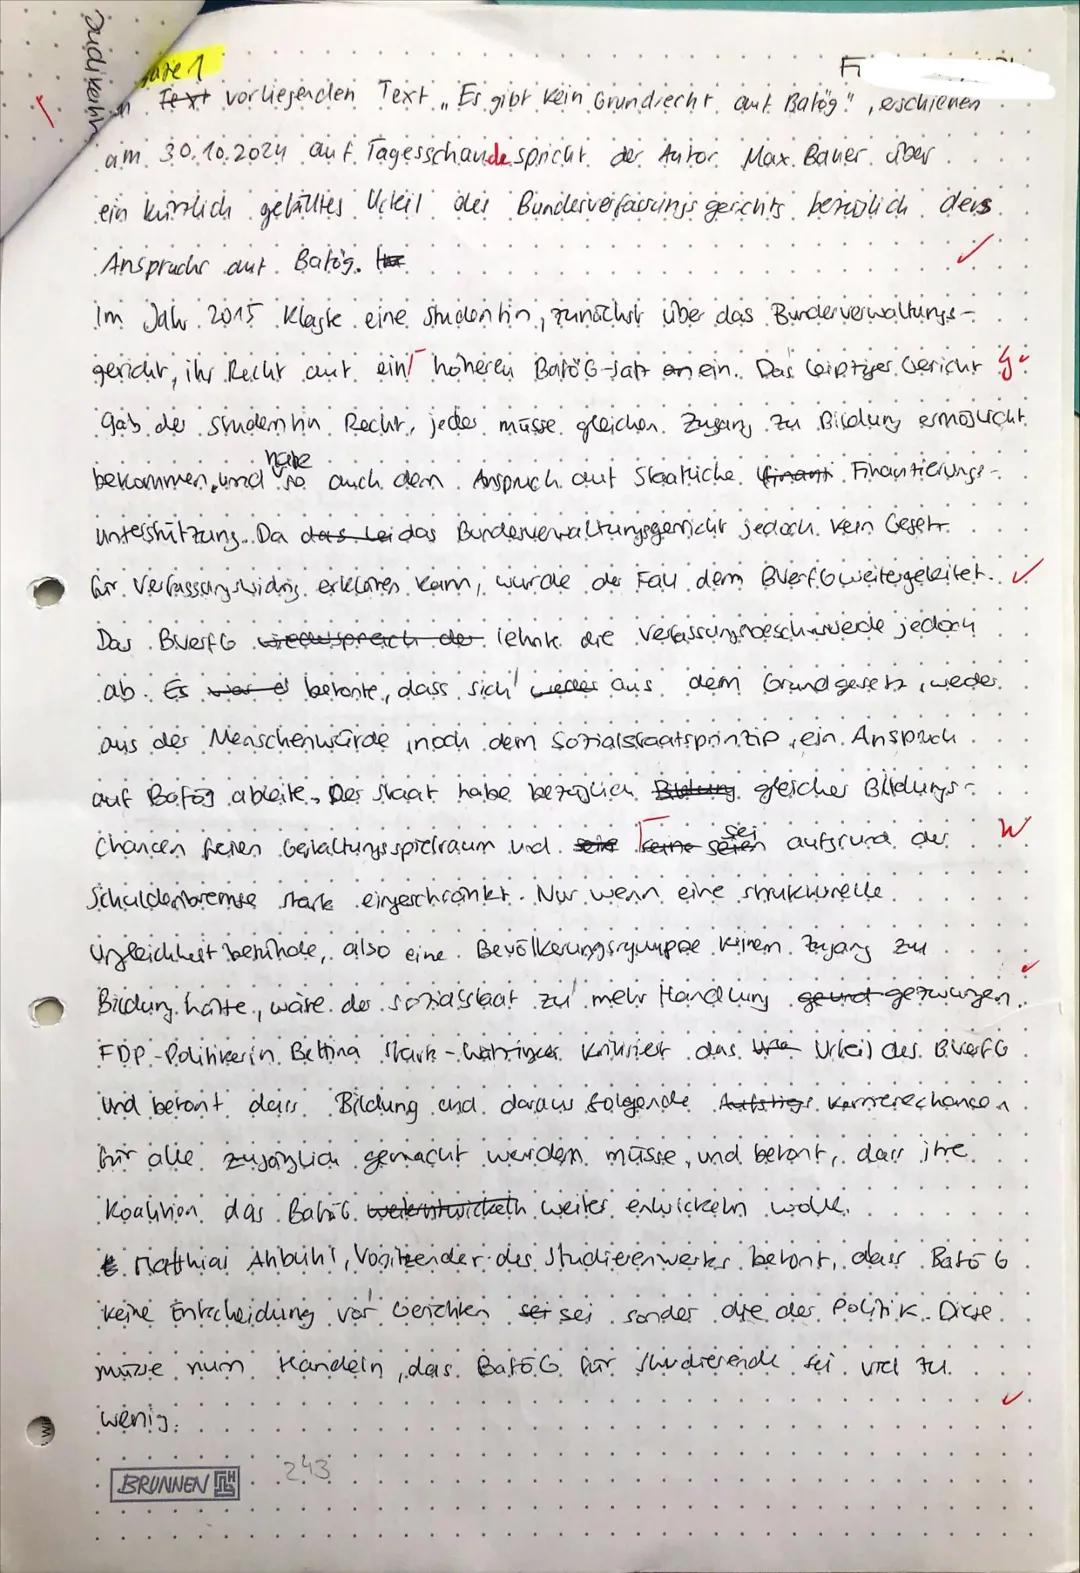 Judikativ
gabe 1
Text vorliegenden Text „Es gibt kein Grundrecht auf Bafög", erschienen
am 30.10.2024 auf Tagesschau.de spricht der Autor Max Bauer über
ein kürzlich gefälltes Urteil des Bundesverfassungsgerichts bezüglich des
Anspruchs auf Bafög.
Im Jahr 2015 klagte eine Studentin, zunächst über das Bundesverwaltungs-
gericht, ihr Recht auf ein höheren BaföG-satz ein. Das Leipziger Gericht
Gab der Studentin Recht, jeder müsse gleichen Zugang zu Bildung ermöglicht
bekommen, und habe so auch den Anspruch auf Staatliche finanz Finanzierungs-
unterstützung. Da das Lei das Bundesverwaltungsgericht jedoch kein Gesetz
für Verfassungswidrig erklären kann, wurde der Fall dem BVerfG weitergeleitet.
Das BVerfG wiedersprach der lehnte die Verfassungsbeschwerde jedoch
ab. Es war es betonte, dass sich weder aus dem Grundgesetz, weder
aus der Menschenwürde, noch dem Sozialstaatsprinzip, ein Anspruch
auf Bafög ableite. Der Staat habe bezüglich Bildung gleicher Bildungs-
Chancen freien Gestaltungsspielraum und seie keine seien sei aufgrund der
Schuldenbremse stark eingeschränkt. Nur wenn eine strukturelle
Ungleichheit bestünde, also eine Bevölkerungsgruppe keinen Zugang zu
Bildung hätte, wäre der Sozialstaat zu mehr Handlung gezwungen.
FDP-Politikerin Bettina Stark-Watzinger kritisiert das Urteil des BVerfG
und betont dass Bildung und daraus folgende Aufstiegs Karrierechancen
für alle zugänglich gemacht werden müsse, und betont, dass ihre
Koalition das BaföG weiterentwickeln weiter entwickeln wolle.
Matthias Anbuhl, Vositzender des Studierenwerks betont, dass BaföG
keine Entscheidung vor Gerichten sei sei sonder die der Politik. Diese
müsse nun Handeln, das BaföG für Studierende sei viel zu
wenig.
BRUNNEN
243